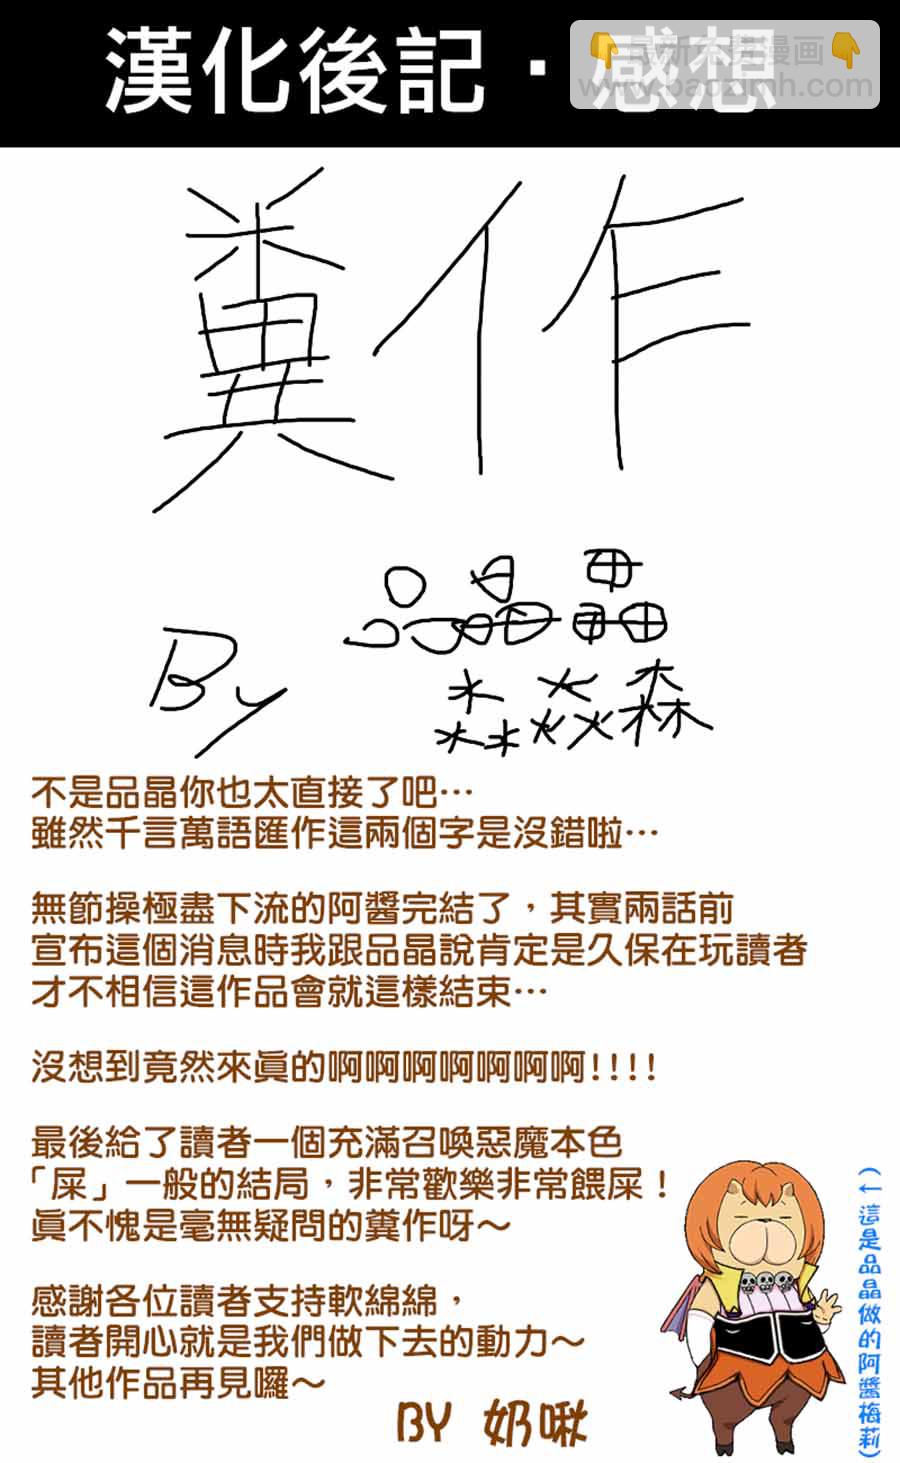 漢化後記·感想
最新免费漫画
www.baozimh.com
糞作
By 品晶晶
淼焱森
不是品晶你也太直接了吧…
雖然千言萬語匯作這兩個字是沒錯啦…
無節操極盡下流的阿醬完結了，其實兩話前
宣布這個消息時我跟品晶說肯定是久保在玩讀者
才不相信這作品會就這樣結束…
沒想到竟然來眞的啊啊啊啊啊啊啊!!!!
最後給了讀者一個充滿召喚惡魔本色
「屎」一般的結局，非常歡樂非常餵屎！
眞不愧是毫無疑問的糞作呀～
感謝各位讀者支持軟綿綿，
讀者開心就是我們做下去的動力～
其他作品再見囉～
BY 奶啾
(←這是品晶做的阿醬梅莉)